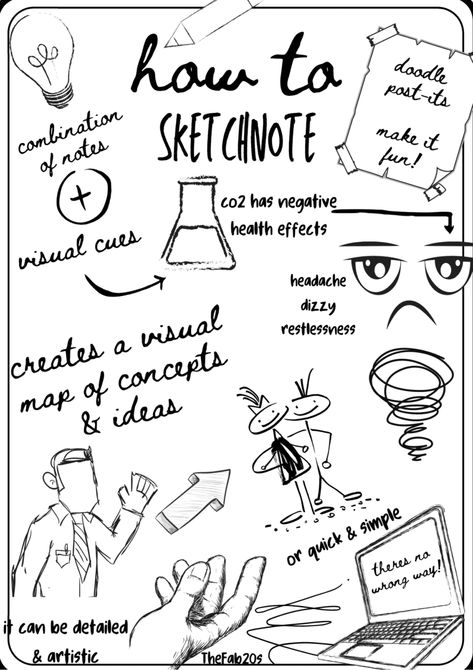 how to
SKETCHNOTE
doodle
post-its
make it
fun!
combination
of notes
+
visual cues
co2 has negative
health effects
headache
dizzy
restlessness
creates a visual
map of concepts
& ideas
or quick & simple
theres no
wrong way!
it can be detailed
& artistic
TheFab20s